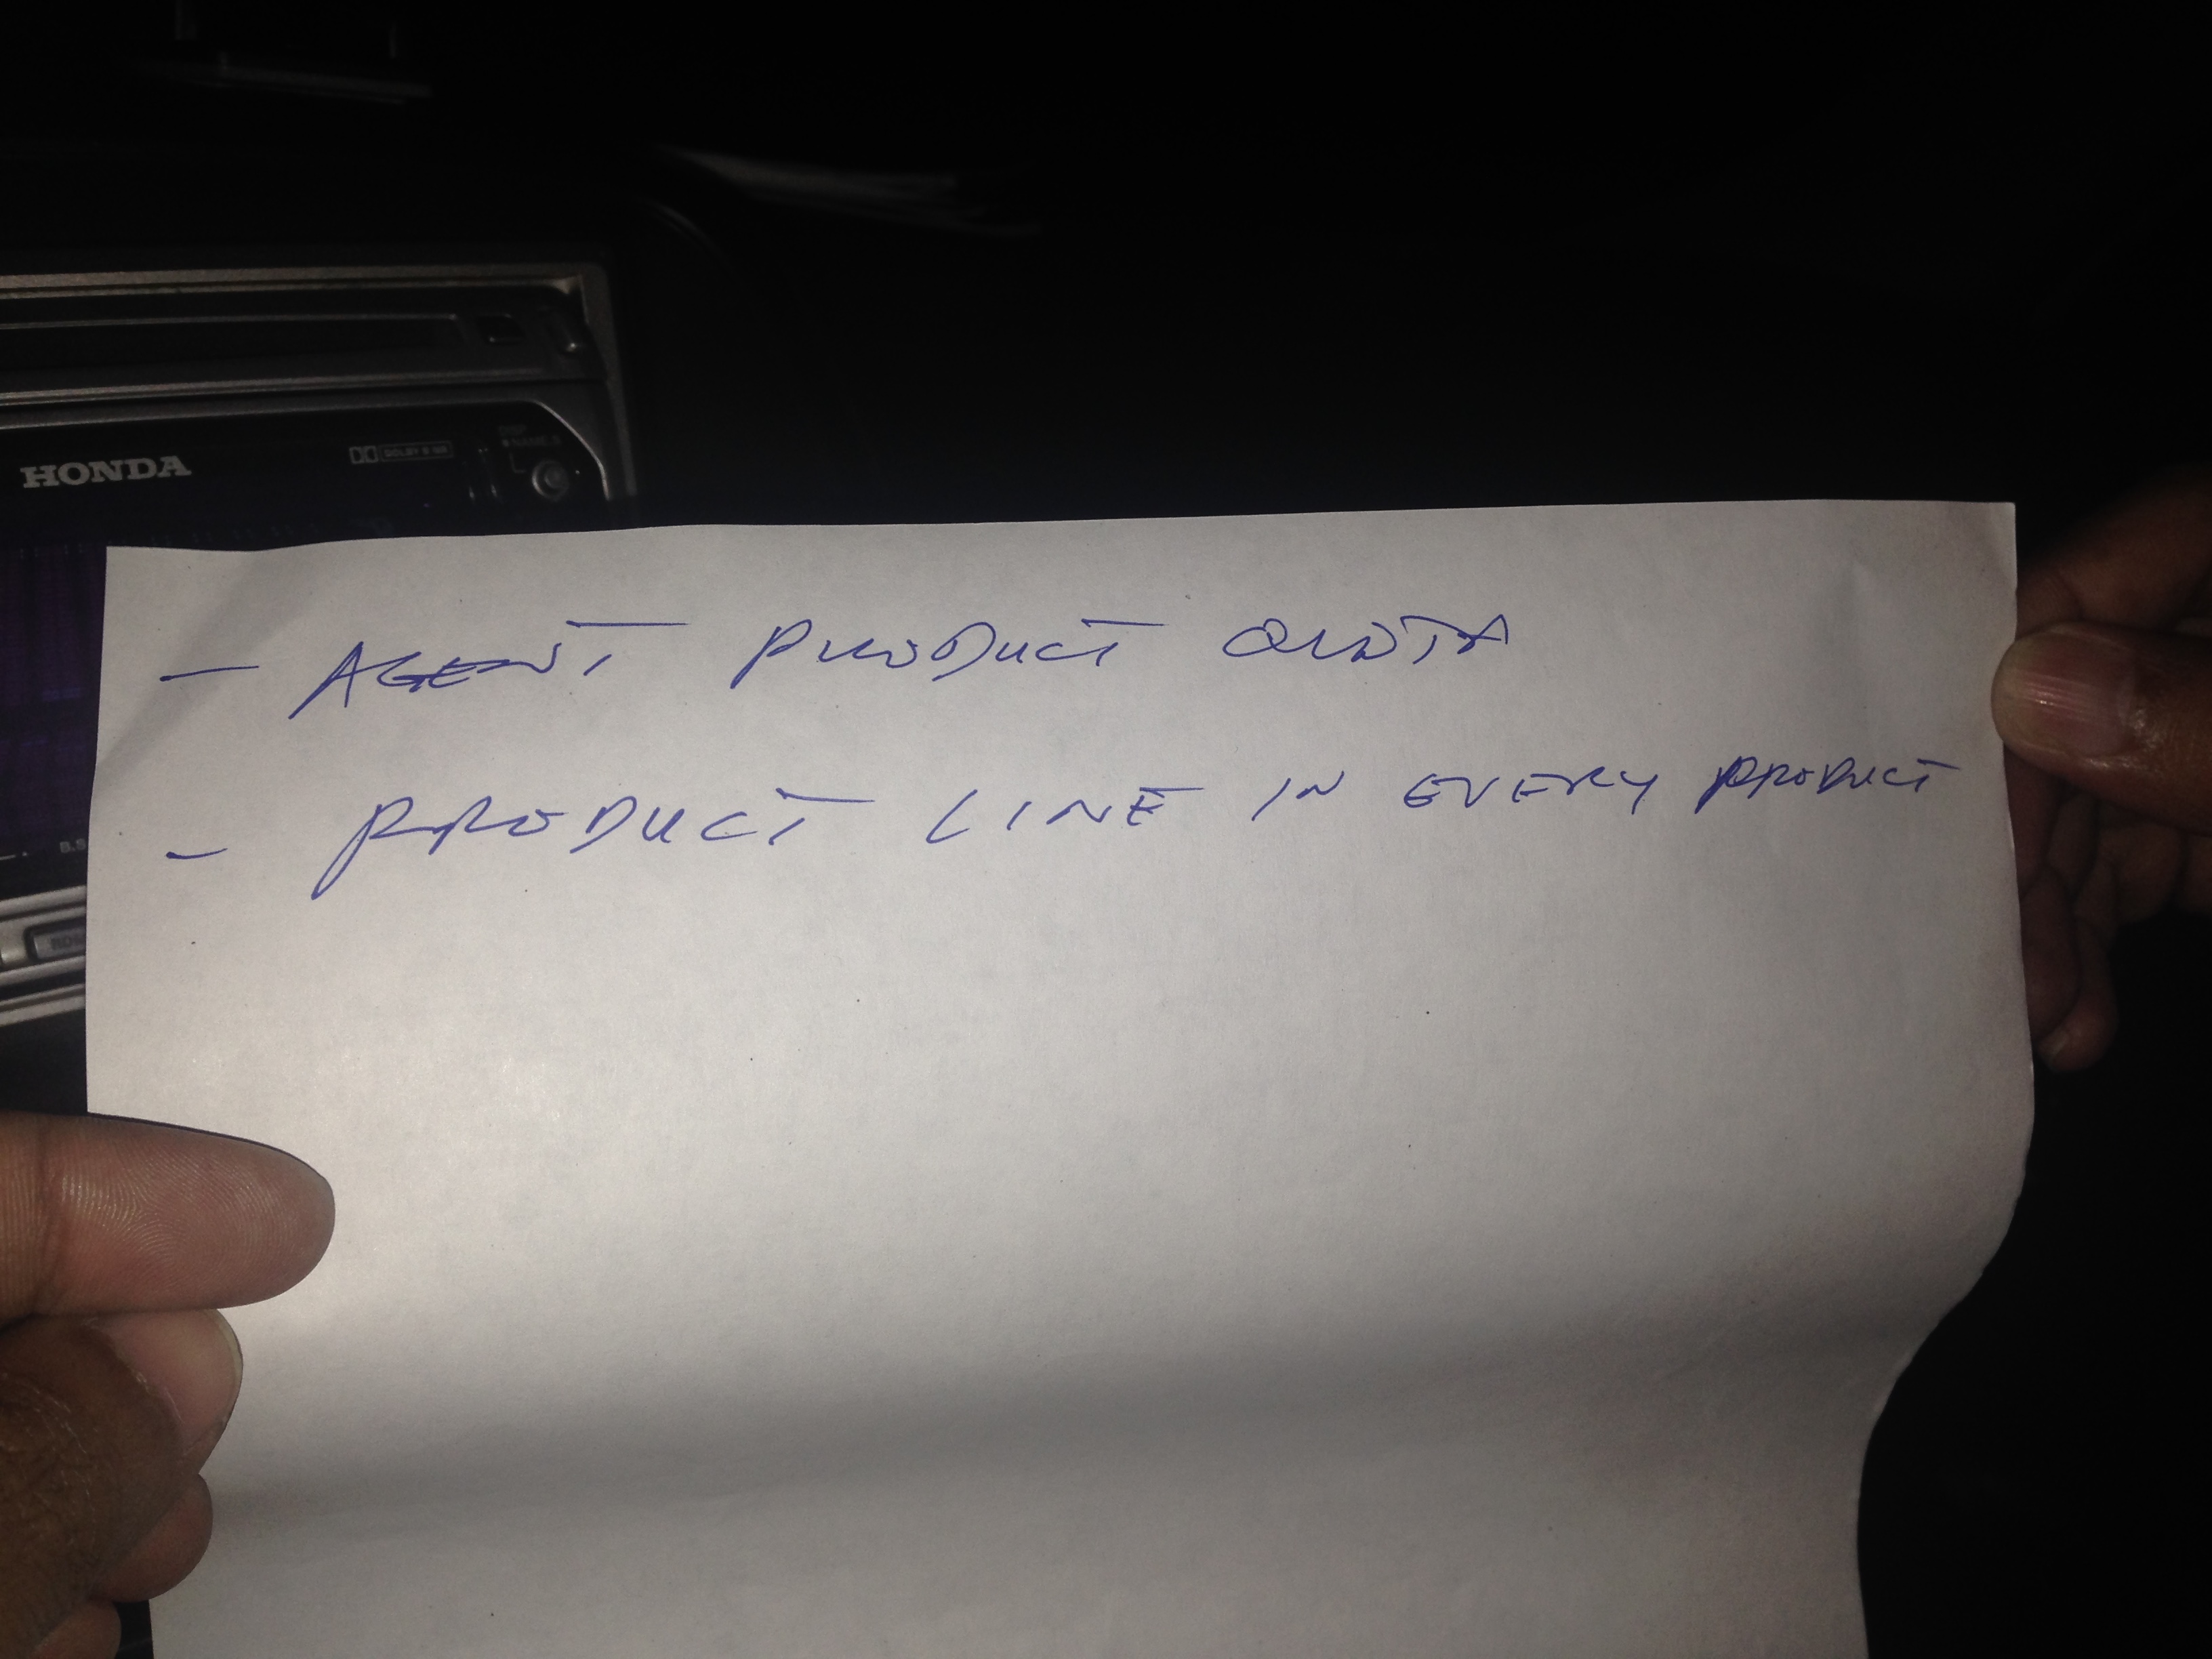 HONDA
DOLBY B NR
DISP
NAME.S
- AGENT PRODUCT QUOTA
- PRODUCT LINE IN EVERY PRODUCT
B.S